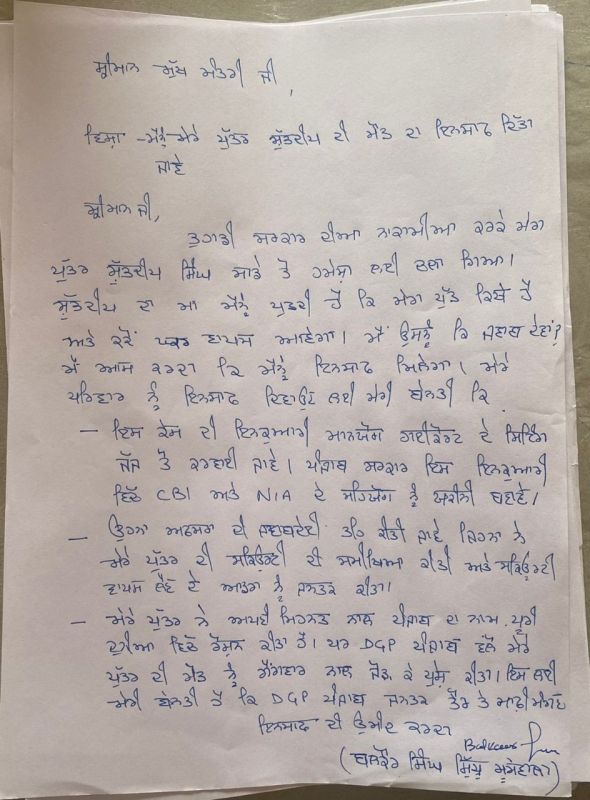 ਸ਼੍ਰੀਮਾਨ ਮੁੱਖ ਮੰਤਰੀ ਜੀ,
ਵਿਸ਼ਾ - ਮੈਨੂੰ ਮੇਰੇ ਪੁੱਤਰ ਸ਼ੁੱਭਦੀਪ ਦੀ ਮੌਤ ਦਾ ਇਨਸਾਫ ਦਿੱਤਾ
ਜਾਵੇ
ਸ਼੍ਰੀਮਾਨ ਜੀ,
ਤੁਹਾਡੀ ਸਰਕਾਰ ਦੀਆ ਨਾਕਾਮੀਆ ਕਰਕੇ ਮੇਰਾ
ਪੁੱਤਰ ਸ਼ੁੱਭਦੀਪ ਸਿੰਘ ਸਾਡੇ ਤੋਂ ਹਮੇਸ਼ਾ ਲਈ ਚਲਾ ਗਿਆ।
ਸ਼ੁੱਭਦੀਪ ਦਾ ਮਾ ਮੈਨੂੰ ਪੁਛਦੀ ਹੈ ਕਿ ਮੇਰਾ ਪੁੱਤ ਕਿਥੇ ਹੈ
ਅਤੇ ਕਦੋਂ ਘਰ ਵਾਪਸ ਆਵੇਗਾ। ਮੈਂ ਉਸਨੂੰ ਕਿ ਜਵਾਬ ਦੇਵਾਂ?
ਮੈਂ ਆਸ ਕਰਦਾ ਕਿ ਮੈਨੂੰ ਇਨਸਾਫ ਮਿਲੇਗਾ। ਮੇਰੇ
ਪਰਿਵਾਰ ਨੂੰ ਇਨਸਾਫ ਦਿਵਾਉਣ ਲਈ ਮੇਰੀ ਬੇਨਤੀ ਕਿ
- ਇਸ ਕੇਸ ਦੀ ਇਨਕੁਆਰੀ ਮਾਨਯੋਗ ਹਾਈਕੋਰਟ ਦੇ ਸਿਟਿੰਗ
ਜੱਜ ਤੋਂ ਕਰਵਾਈ ਜਾਵੇ। ਪੰਜਾਬ ਸਰਕਾਰ ਇਸ ਇਨਕੁਆਰੀ
ਵਿੱਚ CBI ਅਤੇ NIA ਦੇ ਸਹਿਯੋਗ ਨੂੰ ਯਕੀਨੀ ਬਣਾਵੇ।
- ਉਹਨਾ ਅਫਸਰਾ ਦੀ ਜਵਾਬਦੇਹੀ ਤਹਿ ਕੀਤੀ ਜਾਵੇ ਜਿਹਨਾ ਨੇ
ਮੇਰੇ ਪੁੱਤਰ ਦੀ ਸਕਿਉਰਟੀ ਦੀ ਸਮੀਖਿਆ ਕੀਤੀ ਅਤੇ ਸਕਿਉਰਟੀ
ਵਾਪਸ ਲੈਣ ਦੇ ਆਡਰਾ ਨੂੰ ਜਨਤਕ ਕੀਤਾ।
- ਮੇਰੇ ਪੁੱਤਰ ਨੇ ਅਪਣੀ ਮਿਹਨਤ ਨਾਲ ਪੰਜਾਬ ਦਾ ਨਾਮ ਪੂਰੀ
ਦੁਨੀਆ ਵਿੱਚ ਰੋਸ਼ਨ ਕੀਤਾ ਹੈ। ਪਰ DGP ਪੰਜਾਬ ਵਲੋਂ ਮੇਰੇ
ਪੁੱਤਰ ਦੀ ਮੌਤ ਨੂੰ ਗੈਂਗਵਾਰ ਨਾਲ ਜੋੜ ਕੇ ਪੇਸ਼ ਕੀਤਾ। ਇਸ ਲਈ
ਮੇਰੀ ਬੇਨਤੀ ਹੈ ਕਿ DGP ਪੰਜਾਬ ਜਨਤਕ ਤੌਰ ਤੇ ਮਾਫੀ ਮੰਗਣ
ਇਨਸਾਫ ਦੀ ਉਮੀਦ ਕਰਦਾ
Balkaur
(ਬਲਕੌਰ ਸਿੰਘ ਸਿੱਧੂ ਮੂਸੇਵਾਲਾ)